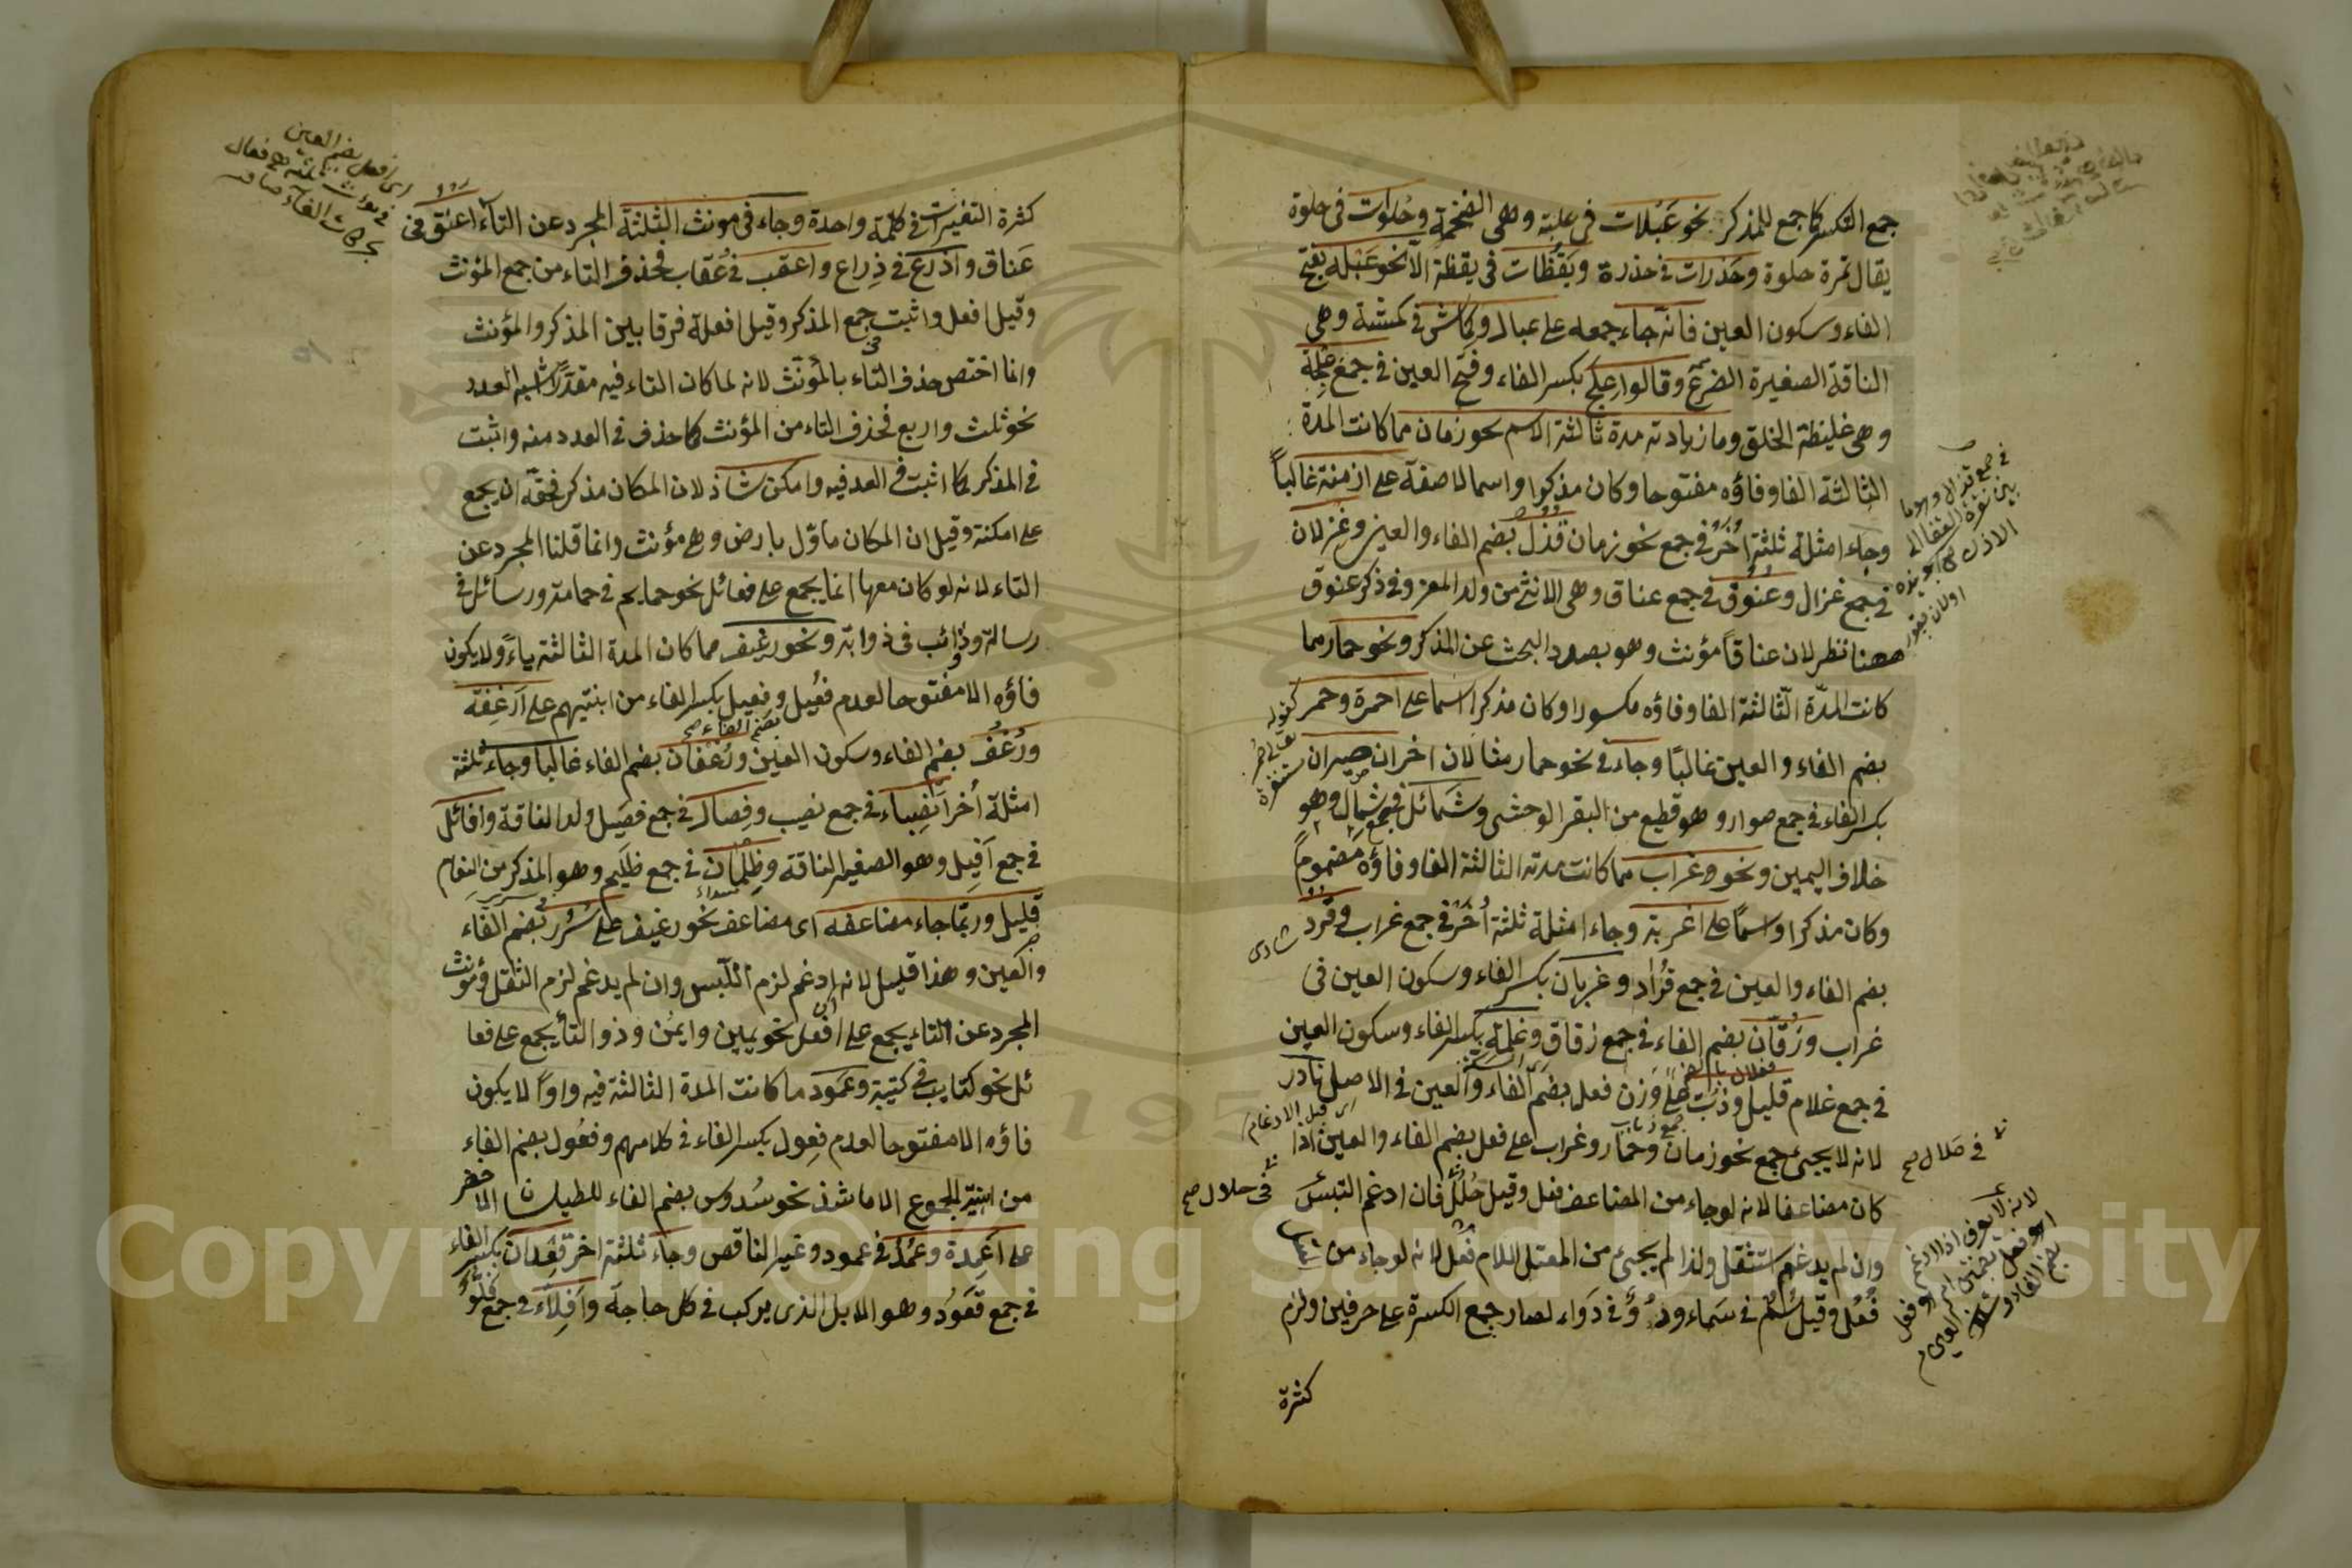 جمع التكسر كما جمع للمذكر نحو عَبُلات فى عبلة وهى الضخمة وحُلوات فى حلوة
يقال تمرة حلوة وحَذرات فى حذرة ويَقُظَات فى يقظة الا نحو عَبْلة بفتح
الفاء وسكون العين فانه جاء جمعه على عبال وكِماش فى كمشة وهى
الناقة الصغيرة الضرع وقالوا عِلَج بكسر الفاء وفتح العين فى جمع عِلْجة
وهى غليظة الخلق وما زيادته مدة ثالثة الاسم نحو زمان مما كانت المدة
الثالثة الفا وفاؤه مفتوحا وكان مذكرا واسما لا صفة على ازمنة غالباً
وجاء امثلة ثلثة اُخَر فى جمع نحو زمان قُذُل بضم الفاء والعين وغِزلان
فى جمع غزال وعُنُوق فى جمع عناق وهى الانثى من ولد المعز وفى ذكر عنوق
ههنا نظر لان عناقاً مؤنث وهو بصدد البحث عن المذكر ونحو حمار مما
كانت المدّة الثّالثة الفا وفاؤه مكسورا وكان مذكرا اسما على احمرة وحمر كقوله
بضم الفاء والعين غالبًا وجاء فى نحو حمار مثالان اخران صِيران
بكسر الفاء فى جمع صوار وهو قطيع من البقر الوحشى وشمائل فى جمع شِمال وهو
خلاف اليمين ونحو غراب مما كانت مدته الثالثة الفا وفاؤه مضموماً
وكان مذكرا واسمًا على اغربة وجاء امثلة ثلثة اُخَر فى جمع غراب قُرُد
بضم الفاء والعين فى جمع قُرَاد وغربان بكسر الفاء وسكون العين فى
غراب وزُقّان بضم الفاء فى جمع زقاق وغِلمة بكسر الفاء وسكون العين
فى جمع غلام قليل وذُبّ على وزن فعل بضم الفاء والعين فى الاصل نادر
لانه لا يجيئ جمع نحو زمان وحمار وغراب على فعل بضم الفاء والعين اذا
كان مضاعفا لانه لو جاء من المضاعف فعل وقيل حُلُل فان ادغم التبس
وان لم يدغم استثقل ولذا لم يجيئ من المعتل اللام فعل لانه لو جاء من
فُعُل وقيل سُمُ فى سَماء ودُوُ فى دَواء لصار جمع الكسرة على حرفين ولزم
كثرة
فى حلال صح
كثرة التغيرات فى كلمة واحدة وجاء فى مونث الثلثة المجرد عن التاء اعنق فى
عَناق واَذرُع فى ذِراع واعقب فى عُقاب فحذف التاء من جمع المؤنث
وقيل افعل واثبت جمع المذكر وقيل افعلة فرقا بين المذكر والمؤنث
وانما اختص حذف التاء بالمؤنث لانه لما كان التاء فيه مقدّرا شبه العدد
نحو ثلث واربع فحذف التاء من المؤنث كما حذف فى العدد منه واثبت
فى المذكر كما اثبت فى العدد فيه وامكن شاذ لان المكان مذكر فحقه ان يجمع
على امكنة وقيل ان المكان ماوّل بارض وهى مؤنث وانما قلنا المجرد عن
التاء لانه لو كان معها انما يجمع على فعائل نحو حمايم فى حمامة ورسائل فى
رسالة وذوائب فى ذوابة ونحو رغيف مما كان المدة الثالثة ياءً ولا يكون
فاؤه الا مفتوحا لعدم فعيل وفعيل بكسر الفاء من ابنيتهم على اَرغِفة
ورُغُف بضم الفاء وسكون العين ورُغْفان بضم الفاء غالبا وجاء ثلثة
امثلة اُخر اَنصِباء فى جمع نصيب وفِصال فى جمع فصيل ولد الناقة وافائل
فى جمع اَفِيل وهو الصغير الناقة وظِلمان فى جمع ظليم وهو المذكر من النعام
قليل وربّما جاء مضاعفه اى مضاعف نحو رغيف على سُرُر بضم الفاء
والعين وهذا قليل لانه ادغم لزم اللبس وان لم يدغم لزم الثقل ومؤنث
المجرد عن التاء يجمع على افعل نحو يمين وايمُن وذو التاء يجمع على فعا
ئل نحو كتايب فى كتيبة وعمود ما كانت المدة الثالثة فيه واواً لا يكون
فاؤه الا مفتوحا لعدم فِعول بكسر الفاء فى كلامهم وفعُول بضم الفاء
من ابنية الجموع الا ما شذ نحو سُدوس بضم الفاء للطيلسان الاخضر
على اَعمِدة وعُمُد فى عمود وغير الناقص وجاء ثلثة اخر قِعْدان بكسر الفاء
فى جمع قَعَود وهو الابل الذى يركب فى كل حاجة واَفلاء فى جمع فَلُوّ
Copyright © King Saud University